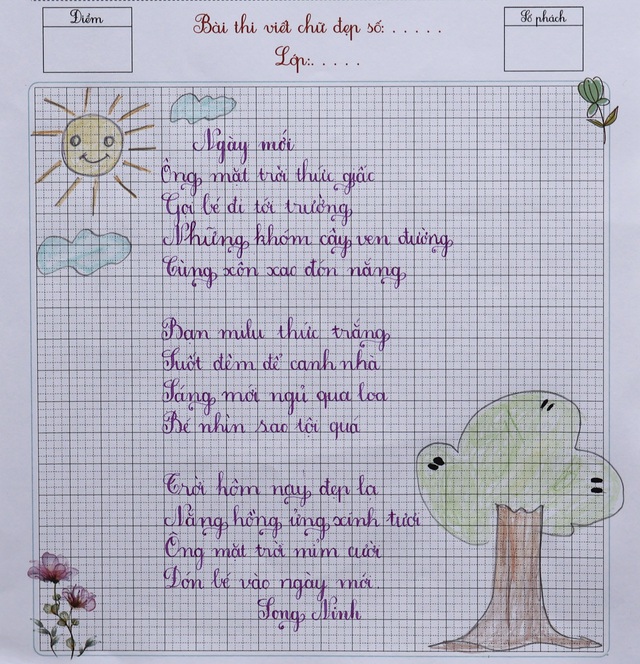 Điểm
Bài thi viết chữ đẹp số: . . . . .
Số phách
Lớp:. . . . .
Ngày mới
Ông mặt trời thức giấc
Gọi bé đi tới trường
Những khóm cây ven đường
Cùng xôn xao đón nắng
Bạn milu thức trắng
Suốt đêm để canh nhà
Sáng mới ngủ qua loa
Bé nhìn sao tội quá
Trời hôm nay đẹp lạ
Nắng hồng ửng xinh tươi
Ông mặt trời mỉm cười
Đón bé vào ngày mới.
Song Ninh